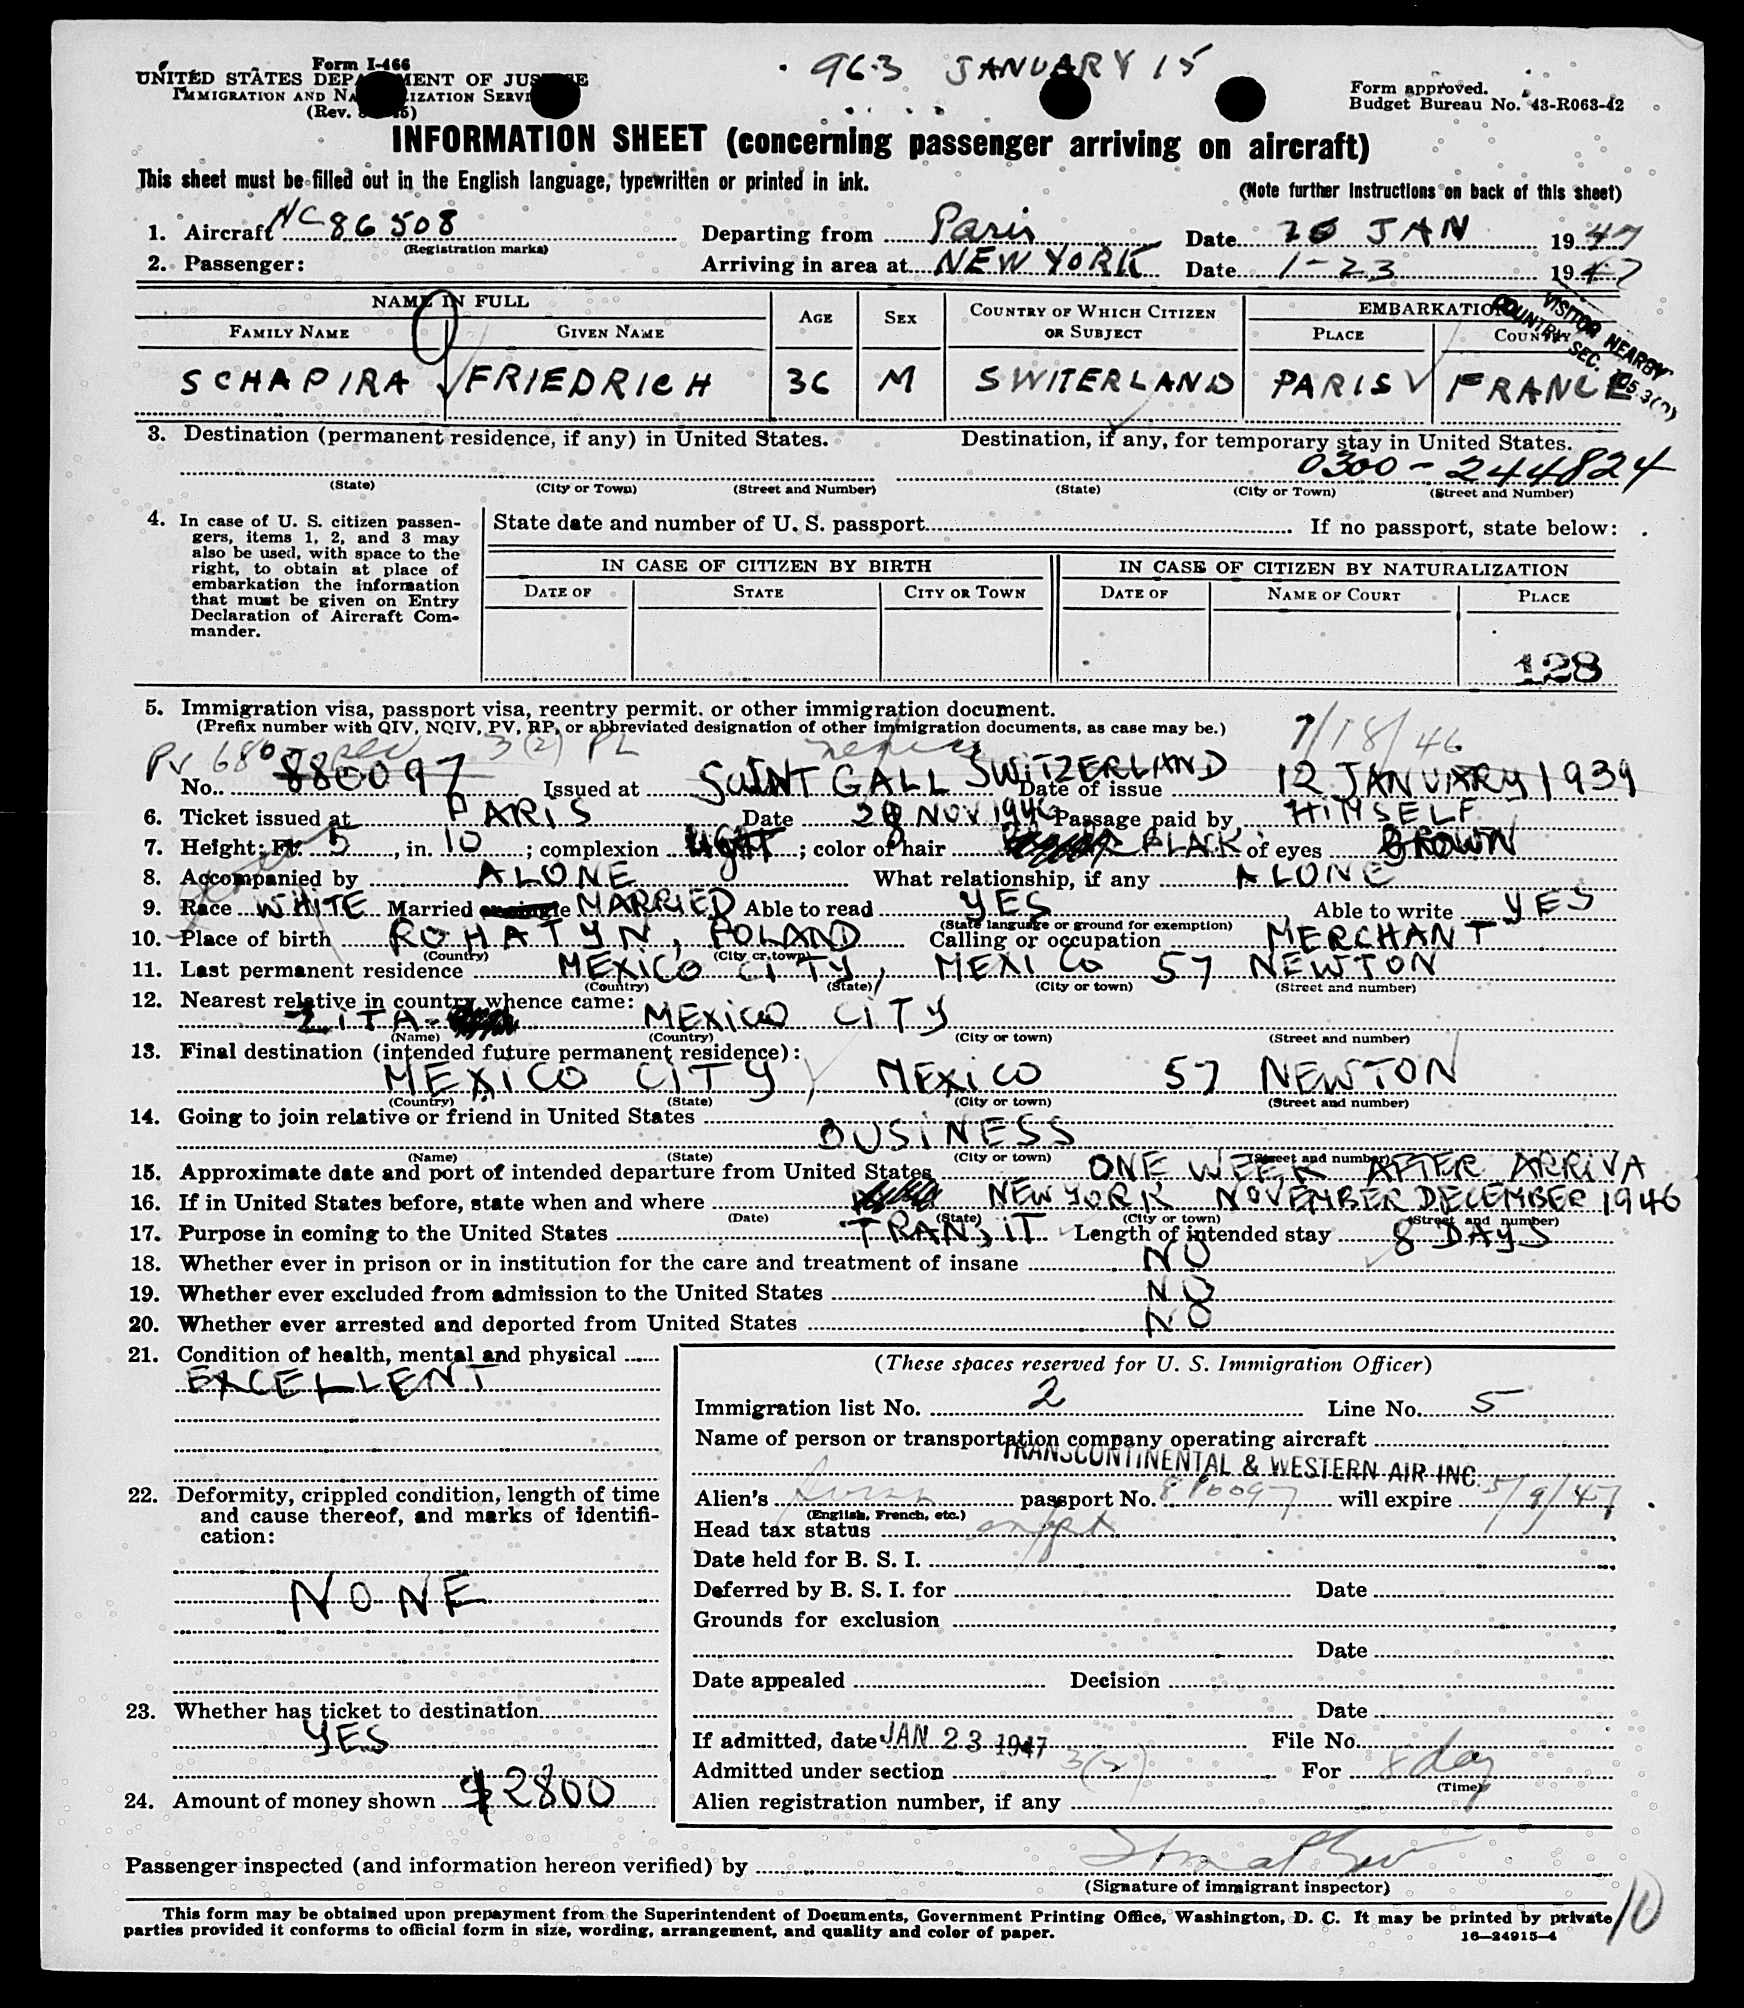 963 JANUARY 15
Form I-466
UNITED STATES DEP MENT OF JUS E
IMMIGRATION AND NA IZATION SERVI
(Rev. 5)
Form approved.
Budget Bureau No. 43-R063-42
INFORMATION SHEET (concerning passenger arriving on aircraft)
This sheet must be filled out in the English language, typewritten or printed in ink.
(Note further instructions on back of this sheet)
1. Aircraft NC86508 Departing from Paris Date JAN 1947
(Registration marks)
2. Passenger: Arriving in area at NEW YORK Date 1-23 1947
NAME IN FULL AGE SEX COUNTRY OF WHICH CITIZEN OR SUBJECT EMBARKATION
FAMILY NAME GIVEN NAME PLACE COUNTRY
VISITOR NEARBY
COUNTRY SEC.
SCHAPIRA FRIEDRICH 36 M SWITERLAND PARIS FRANCE
3. Destination (permanent residence, if any) in United States. Destination, if any, for temporary stay in United States.
0300-244824
(State) (City or Town) (Street and Number) (State) (City or Town) (Street and Number)
4. In case of U. S. citizen passen-
gers, items 1, 2, and 3 may
also be used, with space to the
right, to obtain at place of
embarkation the information
that must be given on Entry
Declaration of Aircraft Com-
mander.
State date and number of U. S. passport If no passport, state below:
IN CASE OF CITIZEN BY BIRTH IN CASE OF CITIZEN BY NATURALIZATION
DATE OF STATE CITY OR TOWN DATE OF NAME OF COURT PLACE
128
5. Immigration visa, passport visa, reentry permit, or other immigration document.
(Prefix number with QIV, NQIV, PV, RP, or abbreviated designation of other immigration documents, as case may be.)
PV 3(2) 7/18/46
No. 880097 Issued at SAINT GALL SWITZERLAND Date of issue 12 JANUARY 1939
6. Ticket issued at PARIS Date NOV 1946 Passage paid by HIMSELF
7. Height: Ft. 5, in. 10; complexion light; color of hair BLACK of eyes BROWN
8. Accompanied by ALONE What relationship, if any ALONE
9. Race WHITE Married or single MARRIED Able to read YES Able to write YES
(State language or ground for exemption)
10. Place of birth ROHATYN, POLAND Calling or occupation MERCHANT
(Country) (City or town)
11. Last permanent residence MEXICO CITY, MEXICO 57 NEWTON
(Country) (State) (City or town) (Street and number)
12. Nearest relative in country whence came:
LITA MEXICO CITY
(Name) (Country) (City or town) (Street and number)
13. Final destination (intended future permanent residence):
MEXICO CITY, MEXICO 57 NEWTON
(Country) (State) (City or town) (Street and number)
14. Going to join relative or friend in United States
BUSINESS
(Name) (State) (City or town) (Street and number)
15. Approximate date and port of intended departure from United States ONE WEEK AFTER ARRIVA
16. If in United States before, state when and where NEW YORK NOVEMBER DECEMBER 1946
(Date) (State) (City or town) (Street and number)
17. Purpose in coming to the United States TRANSIT Length of intended stay 8 DAYS
18. Whether ever in prison or in institution for the care and treatment of insane NO
19. Whether ever excluded from admission to the United States NO
20. Whether ever arrested and deported from United States NO
21. Condition of health, mental and physical
EXCELLENT
22. Deformity, crippled condition, length of time
and cause thereof, and marks of identifi-
cation:
NONE
23. Whether has ticket to destination
YES
24. Amount of money shown $2800
(These spaces reserved for U. S. Immigration Officer)
Immigration list No. 2 Line No. 5
Name of person or transportation company operating aircraft
TRANSCONTINENTAL & WESTERN AIR INC.
Alien's Swiss passport No. will expire 5/9/47
(English, French, etc.)
Head tax status exempt
Date held for B. S. I.
Deferred by B. S. I. for Date
Grounds for exclusion
Date
Date appealed Decision
Date
If admitted, date JAN 23 1947 File No.
Admitted under section 3(2) For 8 day
(Time)
Alien registration number, if any
Passenger inspected (and information hereon verified) by
(Signature of immigrant inspector)
10
This form may be obtained upon prepayment from the Superintendent of Documents, Government Printing Office, Washington, D. C. It may be printed by private
parties provided it conforms to official form in size, wording, arrangement, and quality and color of paper.
16—24915-4